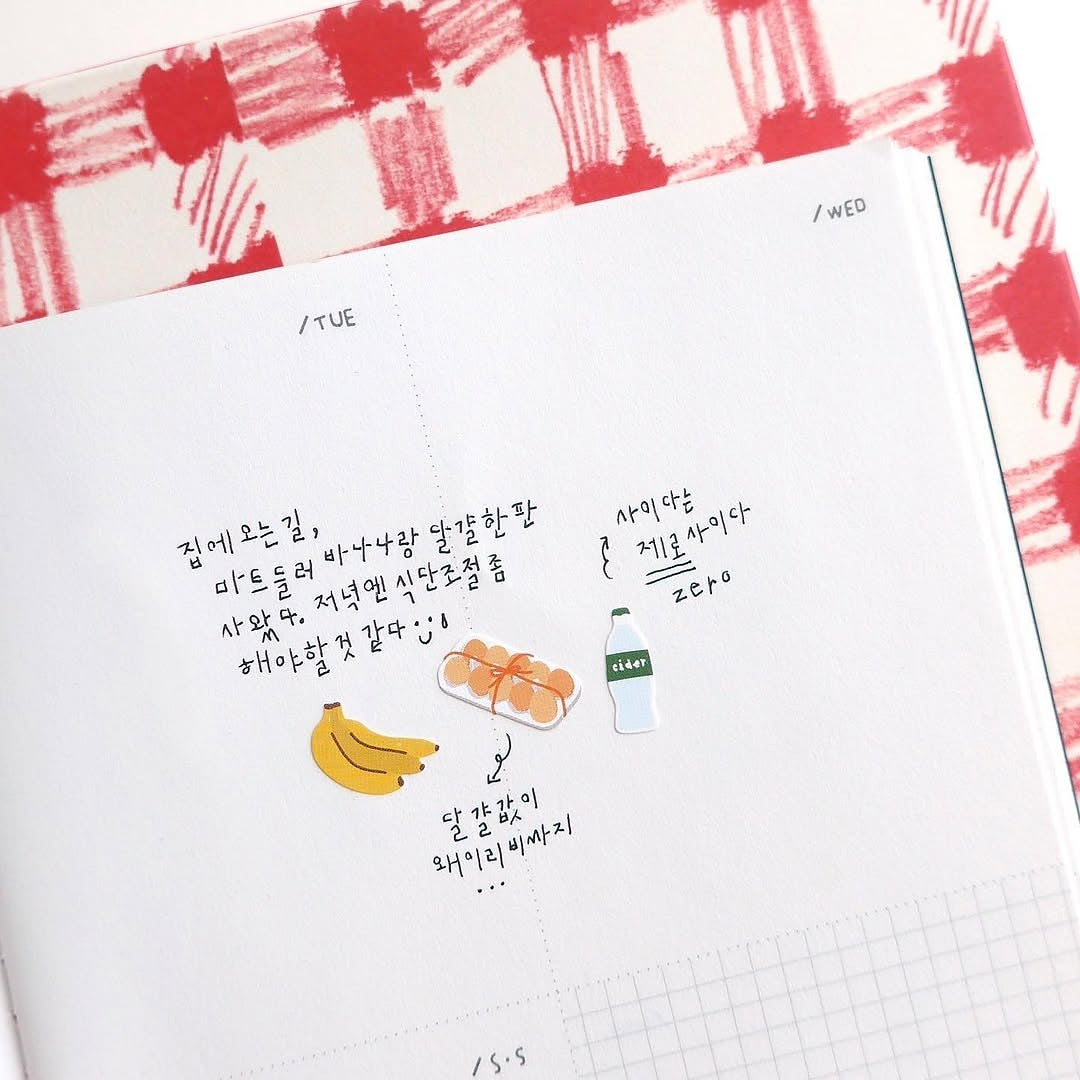 /TUE
/WED
집에 오는 길,
마트들러 바나나랑 달걀한판
사왔다. 저녁엔 식단조절 좀
해야할 것 같다
사이다는
제로사이다
zero
cider
달걀값이
왜이리비싸지
...
/S.S